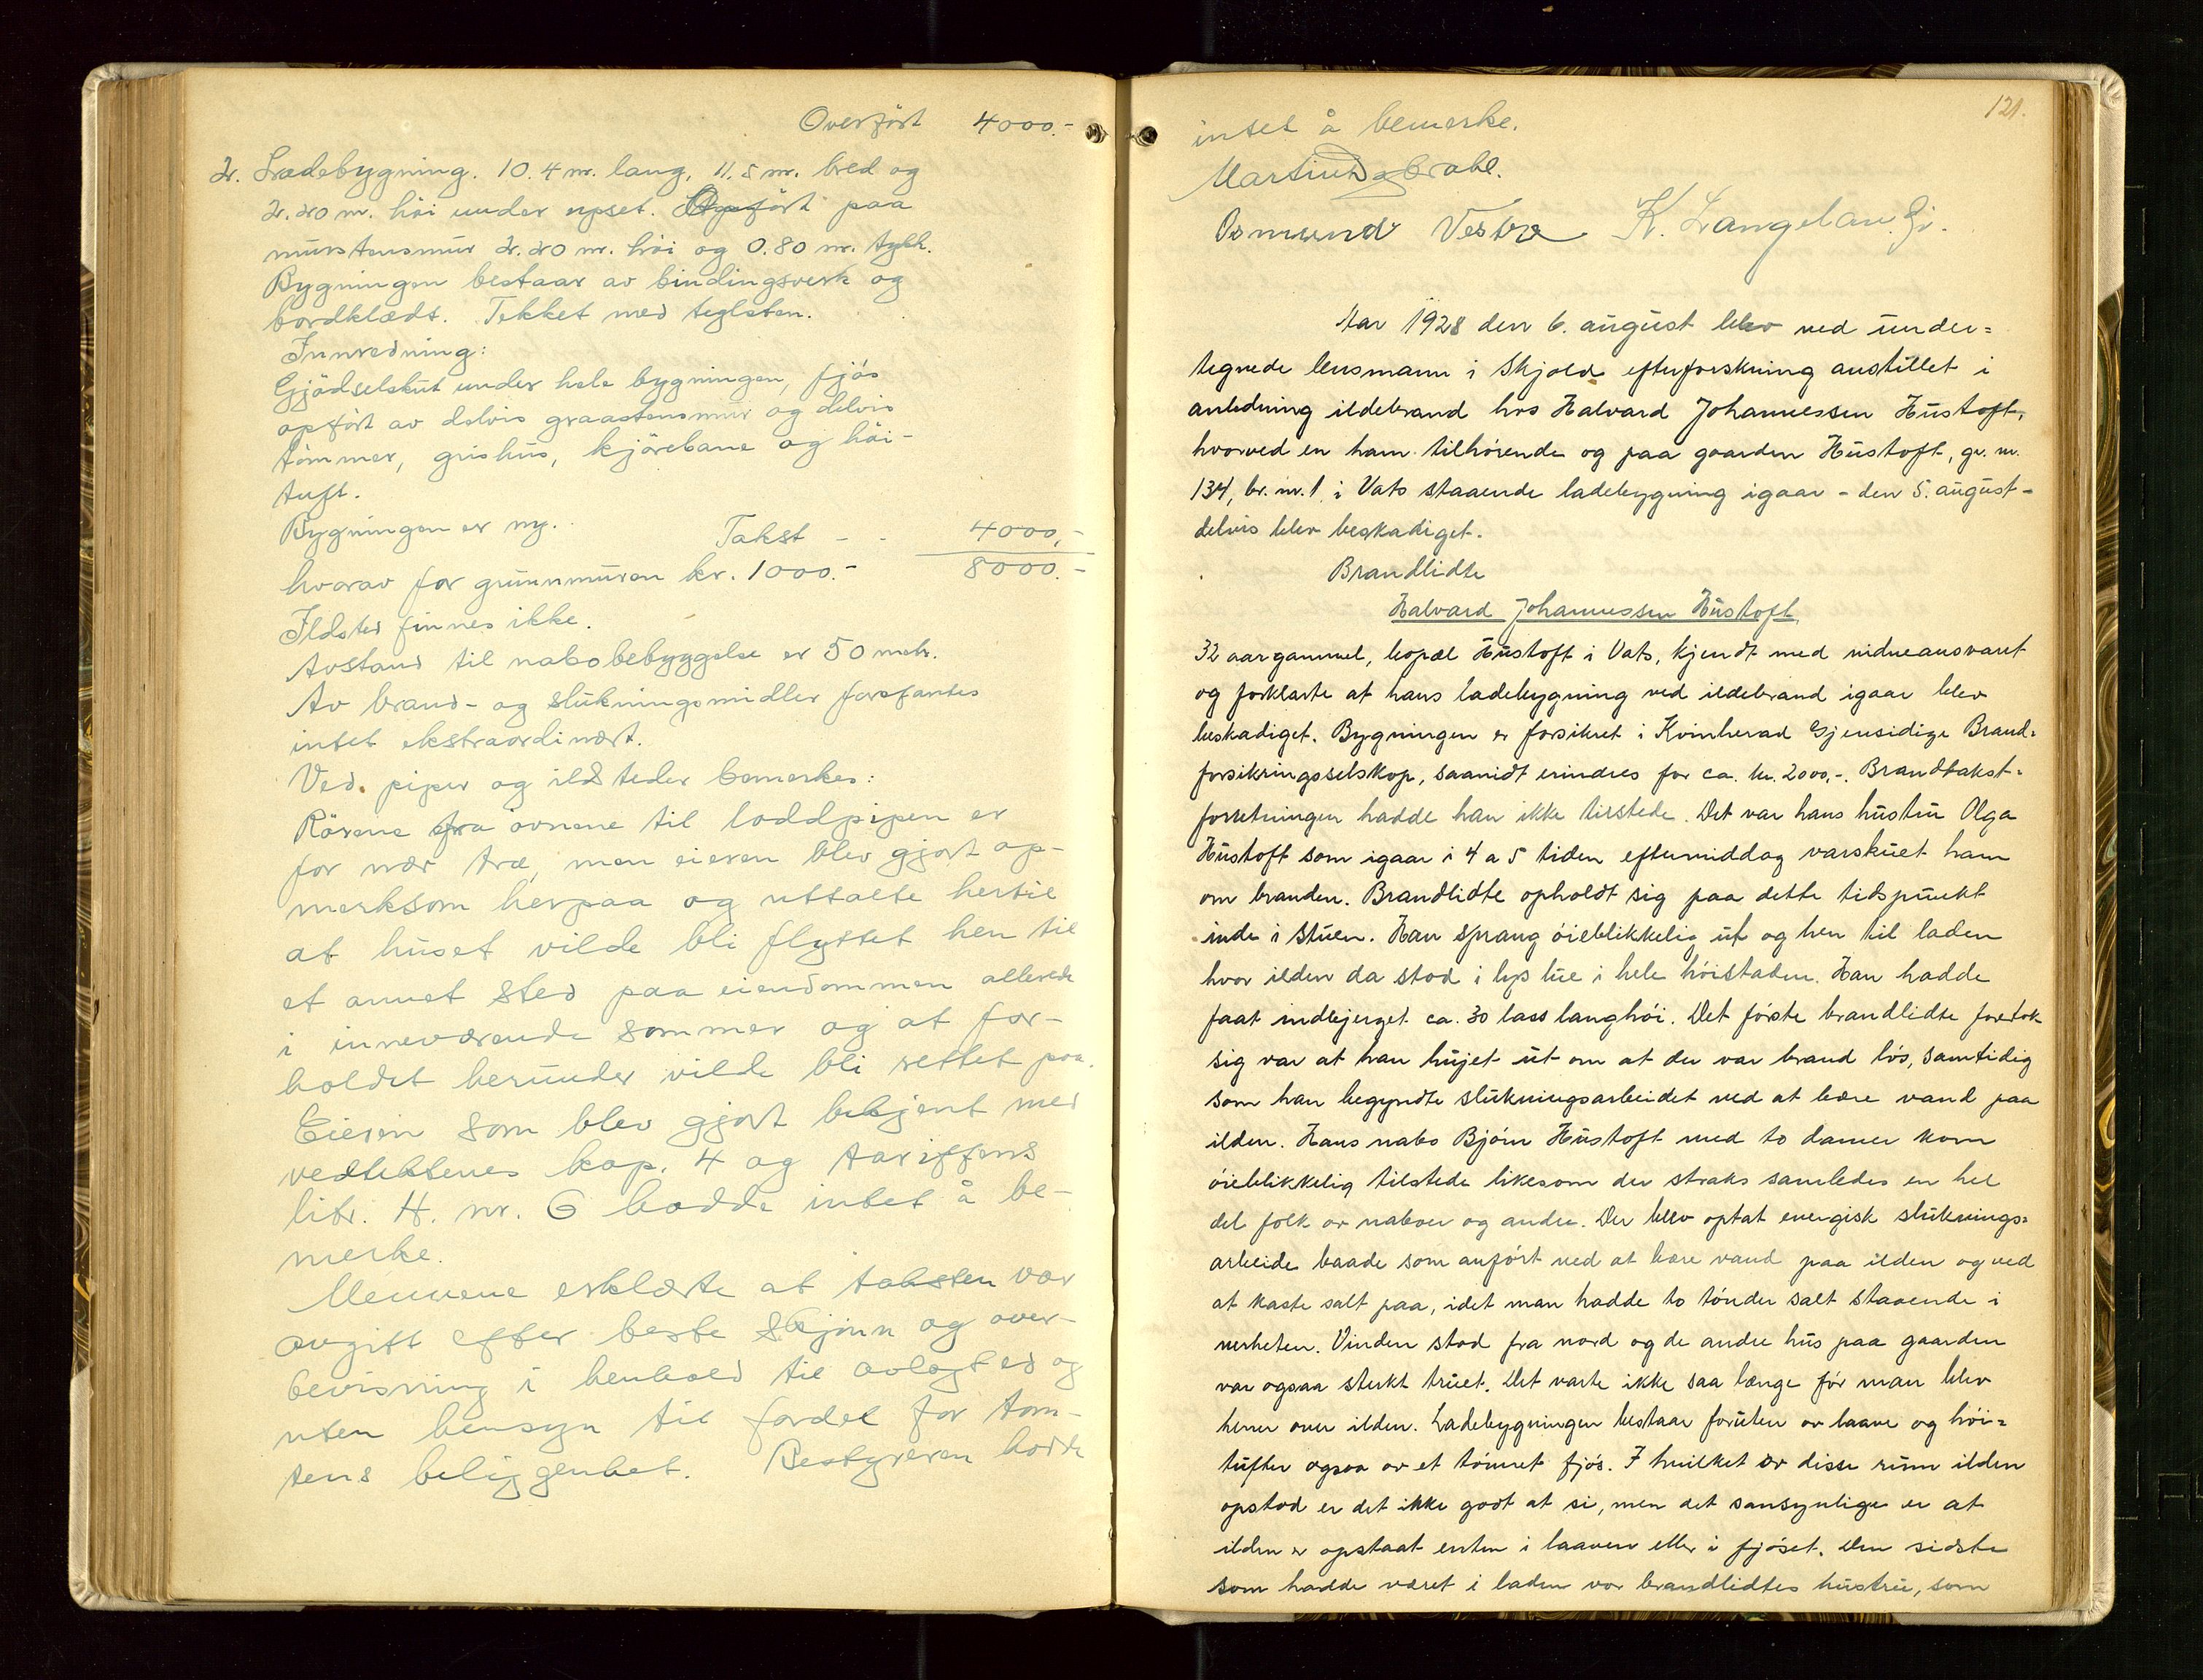 Overført 4000.-
2. Ladebygning. 10.4 m. lang, 11.5 m. bred og
2.20 m. høi under upset. Opført paa
murstensmur 2.20 m. høi og 0.80 m. tykk.
Bygningen bestaar av bindingsverk og
bordklædt. Tekket med teglsten.
Innredning:
Gjødselskut under hele bygningen, fjøs
opført av delvis graastensmur og delvis
tømmer, grishus, kjørebane og høi-
tuft.
Bygningen er ny. Takst - - 4000,-
hvorav for grunnmuren kr. 1000.- 8000.-
Ildsted finnes ikke.
Avstand til nabobebyggelse er 50 mtr.
Av brand- og slukningsmidler forefantes
intet ekstraordinært.
Ved piper og ildsteder bemerkes:
Rørene fra ovnene til loddpipen er
for nær træ, men eieren blev gjort op-
merksom herpaa og uttalte hertil
at huset vilde bli flyttet hen til
et annet sted paa eiendommen allerede
i inneværende sommer og at for-
holdet herunder vilde bli rettet paa.
Eieren som blev gjort bekjent med
vedtektenes kap. 4 og tariffens
litr. H. nr. 6 hadde intet å be-
merke.
Mennene erklærte at taksten var
avgitt efter beste skjønn og over-
bevisning i henhold til avlagt ed og
uten hensyn til fordel for tom-
tens beliggenhet. Bestyreren hadde
121.
intet å bemerke.
Martinus Grabe.
Osmund Vestre K. Langeland Gj.
Aar 1928 den 6. august blev ved under=
tegnede lensmann i Skjold efterforskning anstillet i
anledning ildebrand hos Halvard Johannessen Hustoft,
hvorved en ham tilhørende og paa gaarden Hustoft, gr. nr.
134, br. nr. 1 i Vats staaende ladebygning igaar - den 5. august -
delvis blev beskadiget.
Brandlidte
Halvard Johannessen Hustoft,
32 aar gammel, bopæl Hustoft i Vats, kjendt med vidneansvaret
og forklarte at hans ladebygning ved ildebrand igaar blev
beskadiget. Bygningen er forsikret i Kvinherad Gjensidige Brand=
forsikringsselskap, saavidt erindres for ca. kr. 2000,-. Brandtakst=
forretningen hadde han ikke tilstede. Det var hans hustru Olga
Hustoft som igaar i 4 a 5 tiden eftermiddag varskuet ham
om branden. Brandlidte opholdt sig paa dette tidspunkt
inde i stuen. Han sprang øieblikkelig ut og hen til laden
hvor ilden da stod i lys lue i hele høistaden. Han hadde
faat indbjerget ca. 30 lass langhøi. Det første brandlidte foretok
sig var at han hujet ut om at der var brand løs, samtidig
som han begyndte slukningsarbeidet ved at bære vand paa
ilden. Hans nabo Bjørn Hustoft med to damer kom
øieblikkelig tilstede likesom der straks samledes en hel
del folk av naboer og andre. Der blev optat energisk sluknings=
arbeide baade som anført ved at bære vand paa ilden og ved
at kaste salt paa, idet man hadde to tønder salt staaende i
nerheten. Vinden stod fra nord og de andre hus paa gaarden
var ogsaa sterkt truet. Det varte ikke saa længe før man blev
herre over ilden. Ladebygningen bestaar foruten av laave og høi=
tufter ogsaa av et tømret fjøs. I hvilket av disse rum ilden
opstod er det ikke godt at si, men det sansynlige er at
ilden er opstaat enten i laaven eller i fjøset. Den sidste
som hadde været i laden var brandlidtes hustru, som